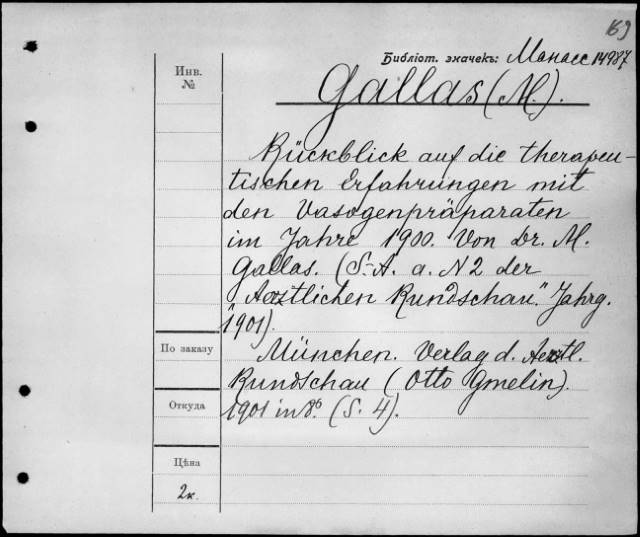 169
Библіот. значекъ: Манасс 14987
Инв.
№
Gallas (M.).
Rückblick auf die therapeu-
tischen Erfahrungen mit
den Vasogenpräparaten
im Jahre 1900. Von Dr. M.
Gallas. (S.-A. a. N 2 der
"Aerztlichen Rundschau." Jahrg.
1901).
По заказу
München. Verlag d. Aerztl.
Rundschau (Otto Gmelin).
Откуда
1901 in 8º. (S. 4).
Цѣна
2к.